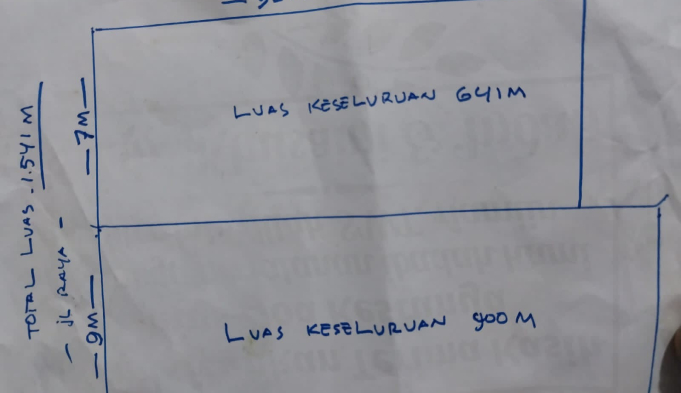 TOTAL LUAS . 1.541 M
- JL RAYA -
- 7M -
LUAS KESELURUAN 641M
- 9M -
LUAS KESELURUAN 900 M